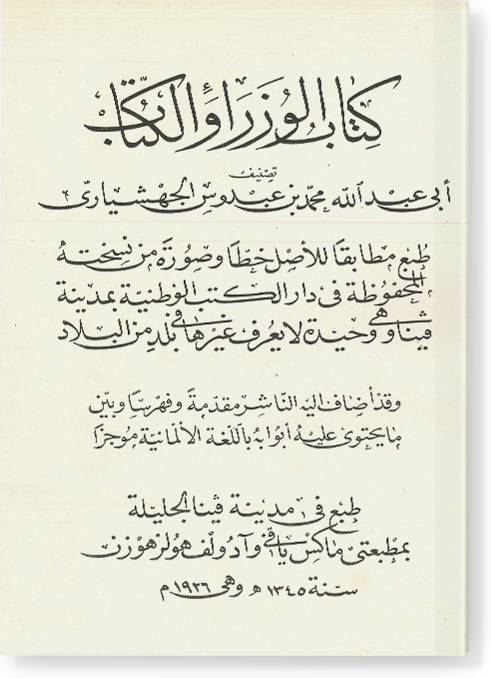 كتاب الوزراء والكتاب
تصنيف
أبي عبد الله محمد بن عبدوس الجهشياري
طبع مطابقا للأصل خطا وصورة من نسخته
المحفوظة في دار الكتب الوطنية بمدينة
فينا وهي وحيدة لا يعرف غيرها في بلد من البلاد
وقد أضاف اليه الناشر مقدمة وفهرسا وبين
ما يحتوى عليه أبوابه باللغة الألمانية موجزا
طبع في مدينة ڤينا الجليلة
بمطبعتى ماكس يافى وآدولف هولزهوزن
سنة ١٣٤٥ ه وهى ١٩٢٦ م